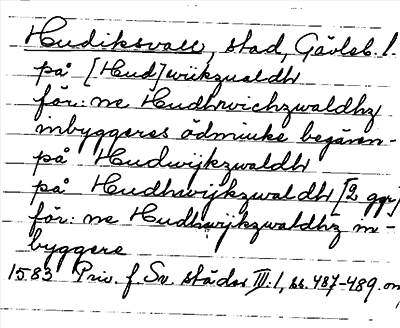 Hudiksvall, stad, Gävleb. l.
på [Hud]wiikzualdh
för:ne Hudhrvichzwaldhz
inbyggeres ödmiuke begären-
på Hudwijkzwaldh
på Hudhwijkzwaldh [2 ggr]
för:ne Hudhwijkzwaldhz in-
byggere
1583 Priv. f. Sv. städer III:1, ss. 487-489.